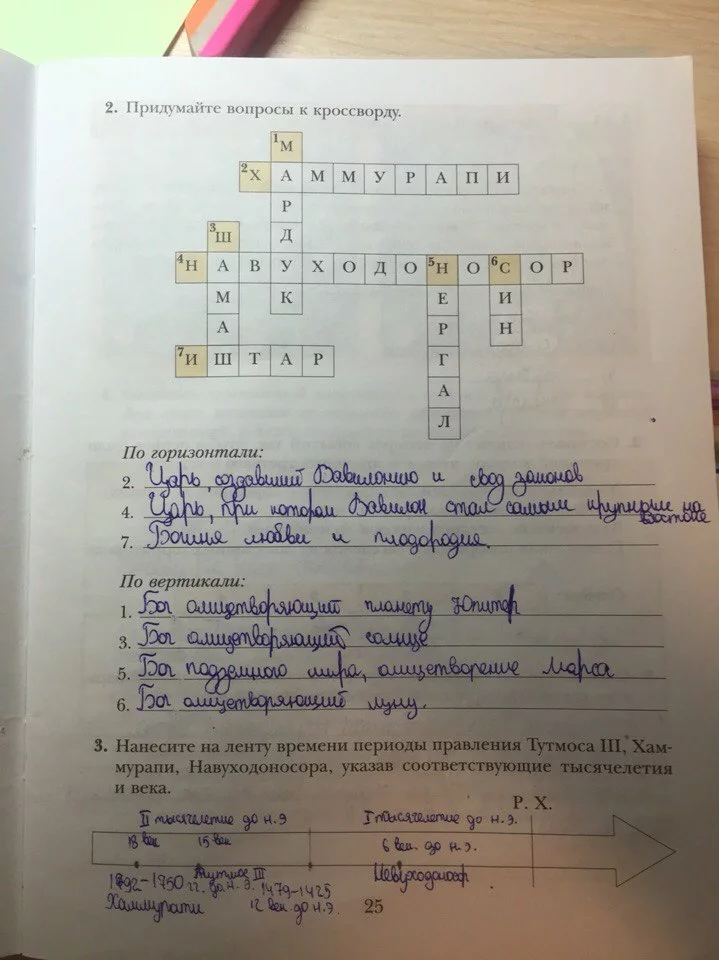 2. Придумайте вопросы к кроссворду.
1М
2ХАММУРАПИ
Р
3Ш Д
4НАВУХОДО5НО6СОР
М К Е И
А Р Н
7ИШТАР Г
А
Л
По горизонтали:
2. Царь, создавший Вавилонию и свод законов
4. Царь, при котором Вавилон стал самым крупным на
Востоке
7. Богиня любви и плодородия.
По вертикали:
1. Бог олицетворяющий планету Юпитер
3. Бог олицетворяющий солнце
5. Бог подземного мира, олицетворение Марса
6. Бог олицетворяющий луну.
3. Нанесите на ленту времени периоды правления Тутмоса III, Хам-
мурапи, Навуходоносора, указав соответствующие тысячелетия
и века.
Р. Х.
II тысячелетие до н.э I тысячелетие до н.э.
18 век 15 век 6 век. до н.э.
Тутмос III
1792-1750 гг. до н.э. 1479-1425
Хаммурапи 12 век. до н.э.
25